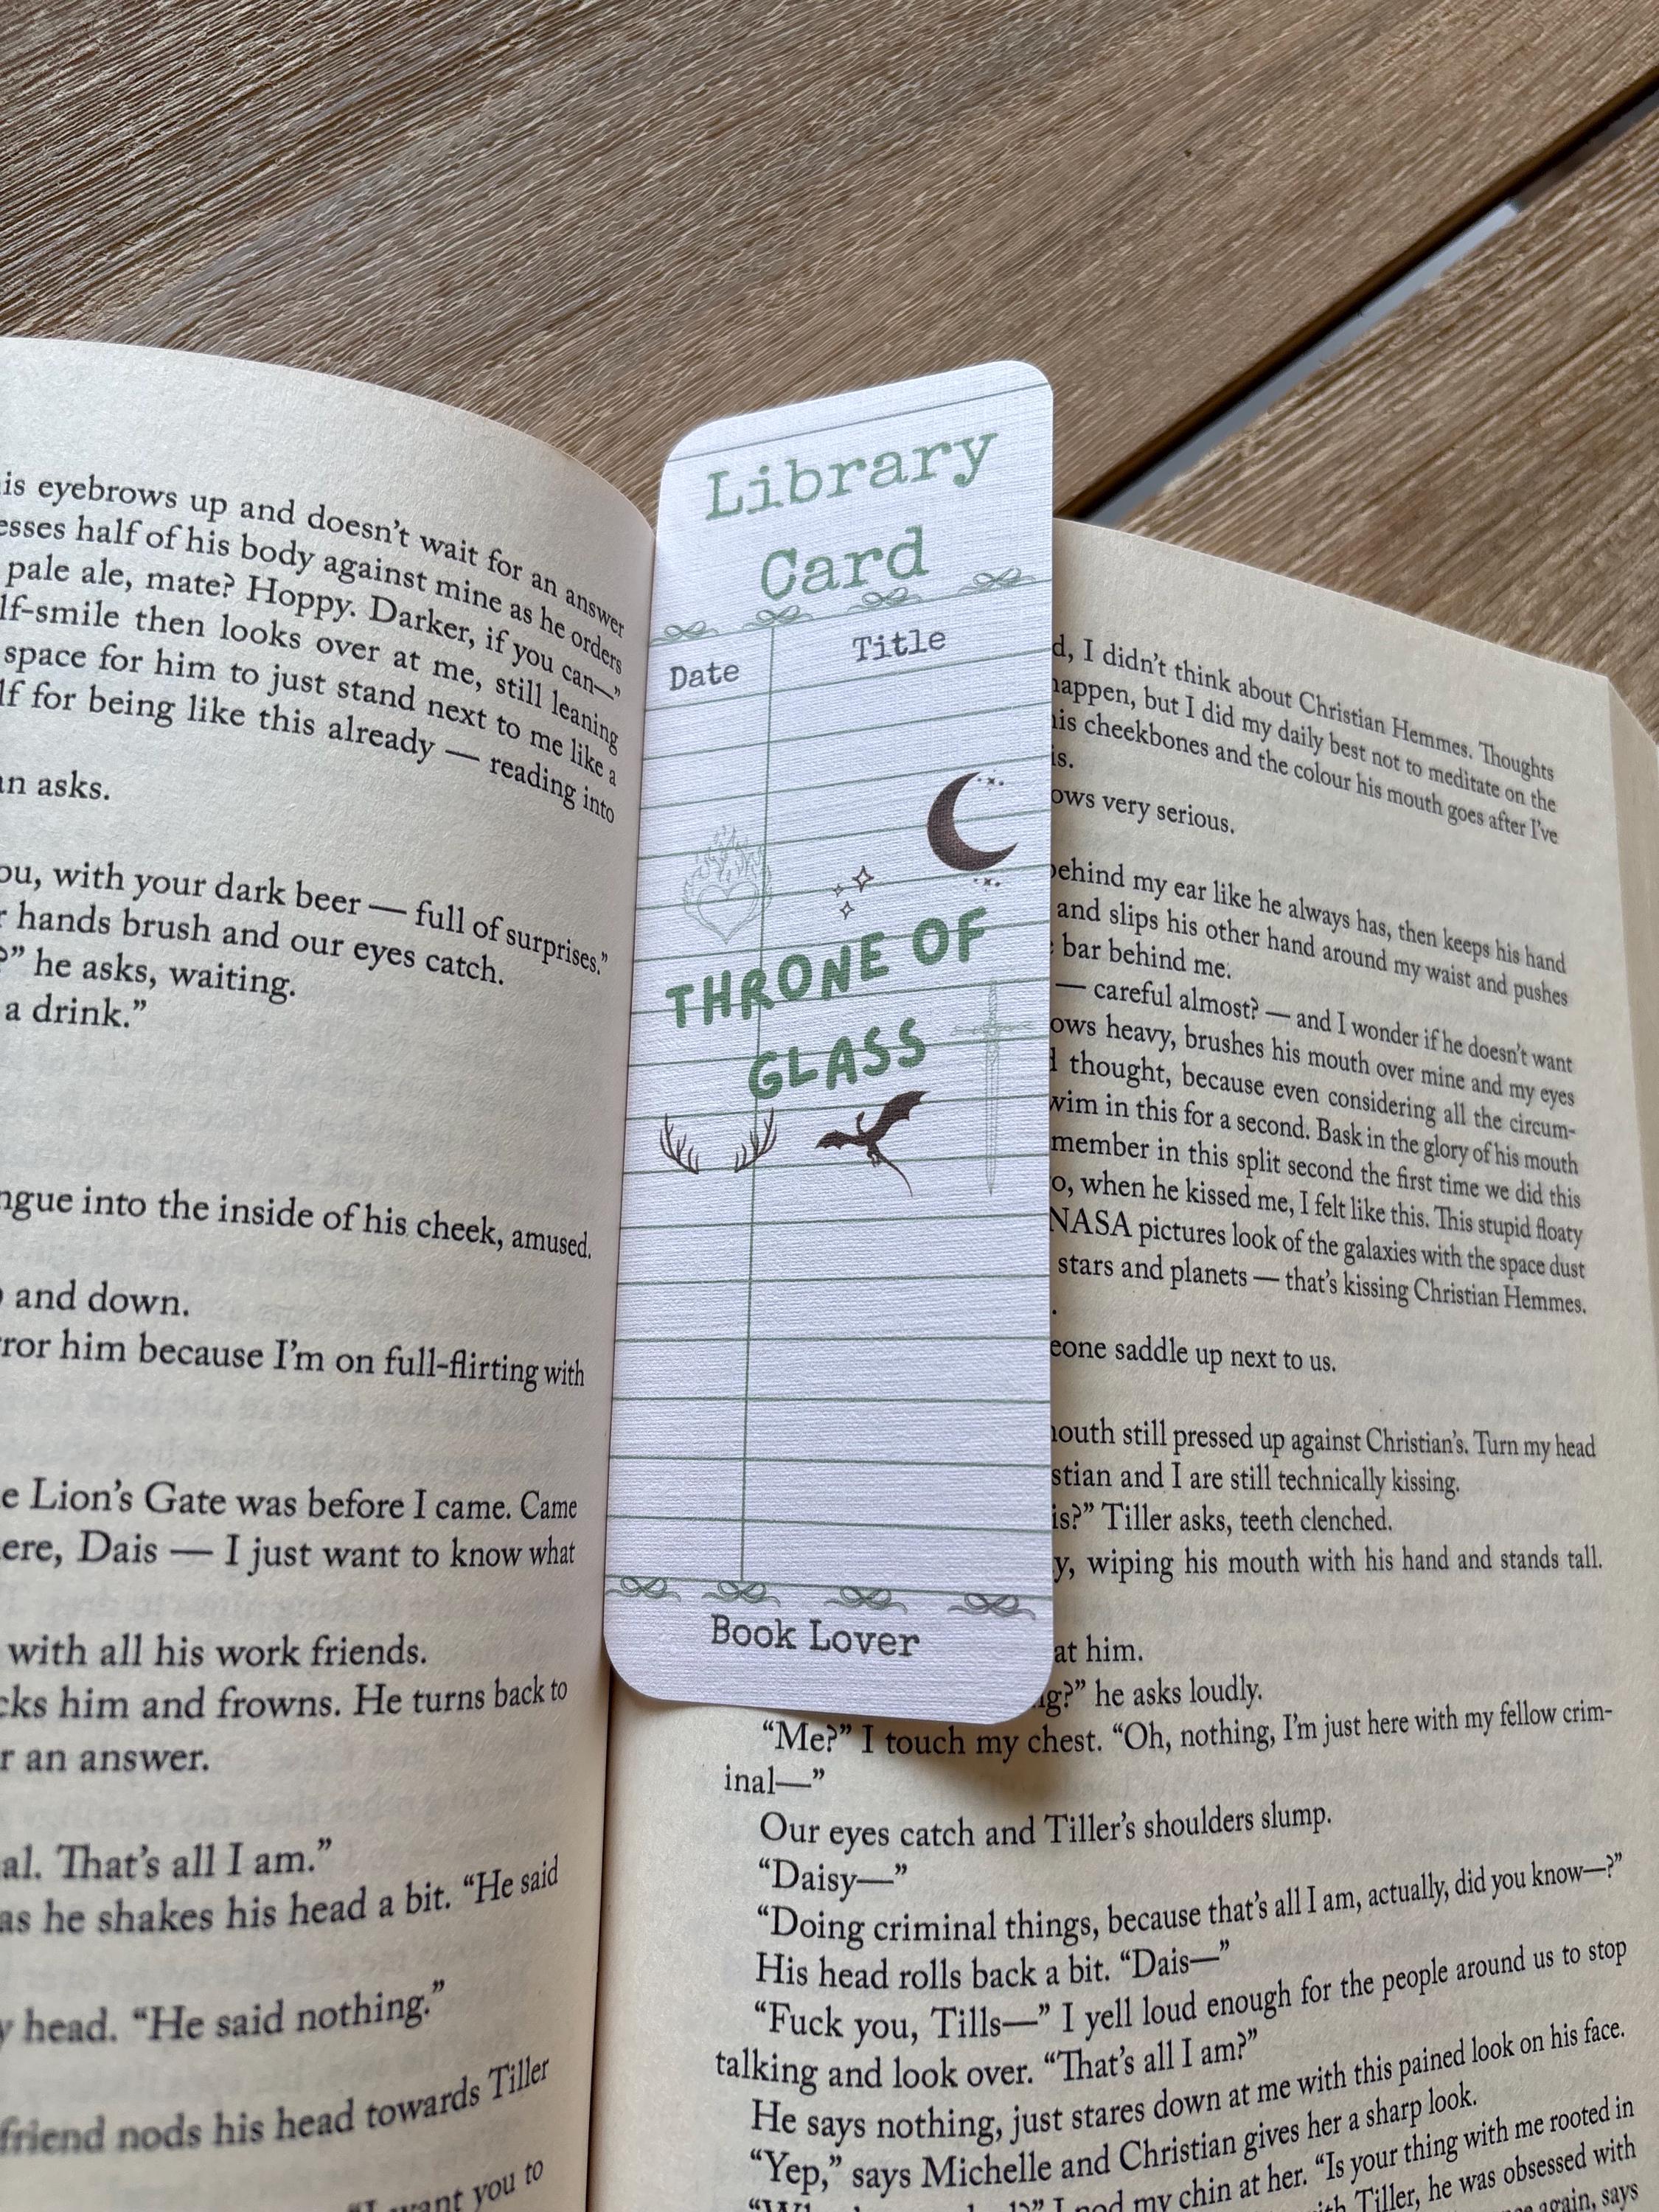 is eyebrows up and doesn't wait for an answer
esses half of his body against mine as he orders
pale ale, mate? Hoppy. Darker, if you can—”
lf-smile then looks over at me, still leaning
space for him to just stand next to me like a
lf for being like this already — reading into
an asks.
ou, with your dark beer — full of surprises.”
r hands brush and our eyes catch.
?” he asks, waiting.
a drink.”
ngue into the inside of his cheek, amused.
and down.
ror him because I'm on full-flirting with
e Lion's Gate was before I came. Came
ere, Dais — I just want to know what
with all his work friends.
cks him and frowns. He turns back to
r an answer.
al. That's all I am.”
as he shakes his head a bit. “He said
y head. “He said nothing.”
friend nods his head towards Tiller
“I want you to
Library
Card
Date Title
THRONE OF
GLASS
Book Lover
d, I didn't think about Christian Hemmes. Thoughts
happen, but I did my daily best not to meditate on the
his cheekbones and the colour his mouth goes after I've
is.
ows very serious.
behind my ear like he always has, then keeps his hand
and slips his other hand around my waist and pushes
bar behind me.
— careful almost? — and I wonder if he doesn't want
ows heavy, brushes his mouth over mine and my eyes
d thought, because even considering all the circum-
wim in this for a second. Bask in the glory of his mouth
member in this split second the first time we did this
o, when he kissed me, I felt like this. This stupid floaty
NASA pictures look of the galaxies with the space dust
stars and planets — that's kissing Christian Hemmes.
.
eone saddle up next to us.
mouth still pressed up against Christian's. Turn my head
stian and I are still technically kissing.
is?” Tiller asks, teeth clenched.
y, wiping his mouth with his hand and stands tall.
at him.
ng?” he asks loudly.
“Me?” I touch my chest. “Oh, nothing, I'm just here with my fellow crim-
inal—”
Our eyes catch and Tiller's shoulders slump.
“Daisy—”
“Doing criminal things, because that's all I am, actually, did you know—?”
His head rolls back a bit. “Dais—”
“Fuck you, Tills—” I yell loud enough for the people around us to stop
talking and look over. “That's all I am?”
He says nothing, just stares down at me with this pained look on his face.
“Yep,” says Michelle and Christian gives her a sharp look.
I nod my chin at her. “Is your thing with me rooted in
Tiller, he was obsessed with
again, says